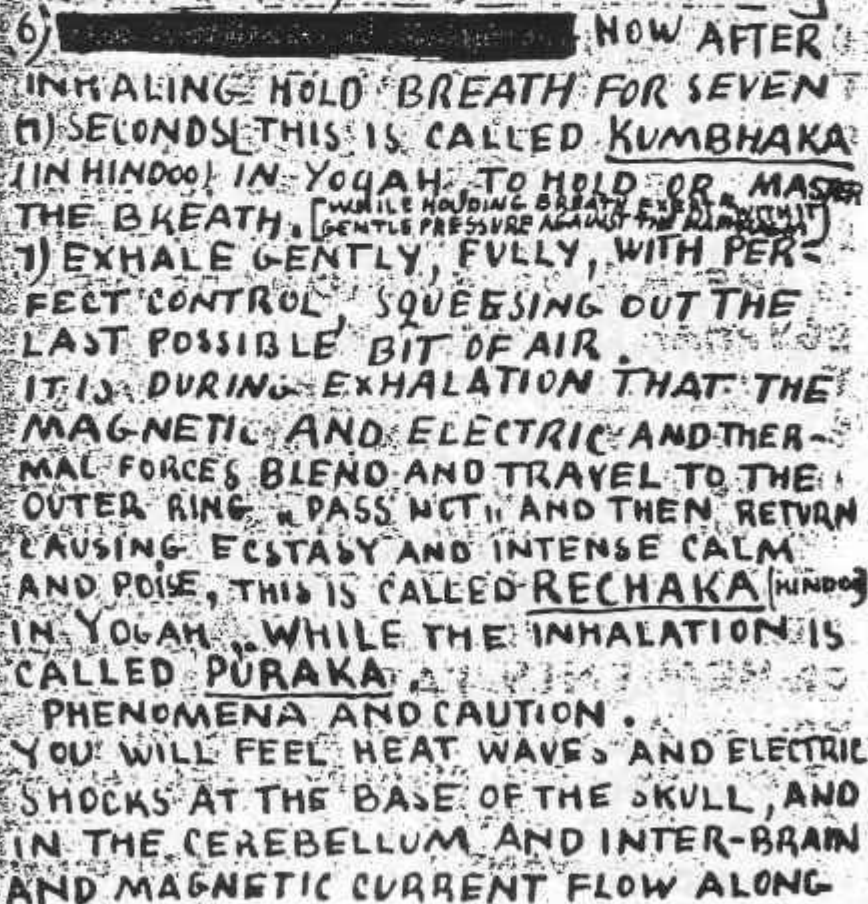 6) NOW AFTER
INHALING HOLD BREATH FOR SEVEN
(7) SECONDS[THIS IS CALLED KUMBHAKA
(IN HINDOO) IN YOGAH, TO HOLD OR MASTER
THE BREATH. [WHILE HOLDING BREATH EXERT
GENTLE PRESSURE AGAINST THE DIAPHRAGM]
7) EXHALE GENTLY, FULLY, WITH PER-
FECT CONTROL, SQUEESING OUT THE
LAST POSSIBLE BIT OF AIR.
IT IS DURING EXHALATION THAT THE
MAGNETIC AND ELECTRIC AND THER-
MAL FORCES BLEND AND TRAVEL TO THE
OUTER RING „PASS NOT„ AND THEN RETURN
CAUSING ECSTASY AND INTENSE CALM
AND POISE, THIS IS CALLED RECHAKA (HINDOO)
IN YOGAH „WHILE THE INHALATION IS
CALLED PURAKA.
PHENOMENA AND CAUTION.
YOU WILL FEEL HEAT WAVES AND ELECTRIC
SHOCKS AT THE BASE OF THE SKULL, AND
IN THE CEREBELLUM AND INTER-BRAIN
AND MAGNETIC CURRENT FLOW ALONG